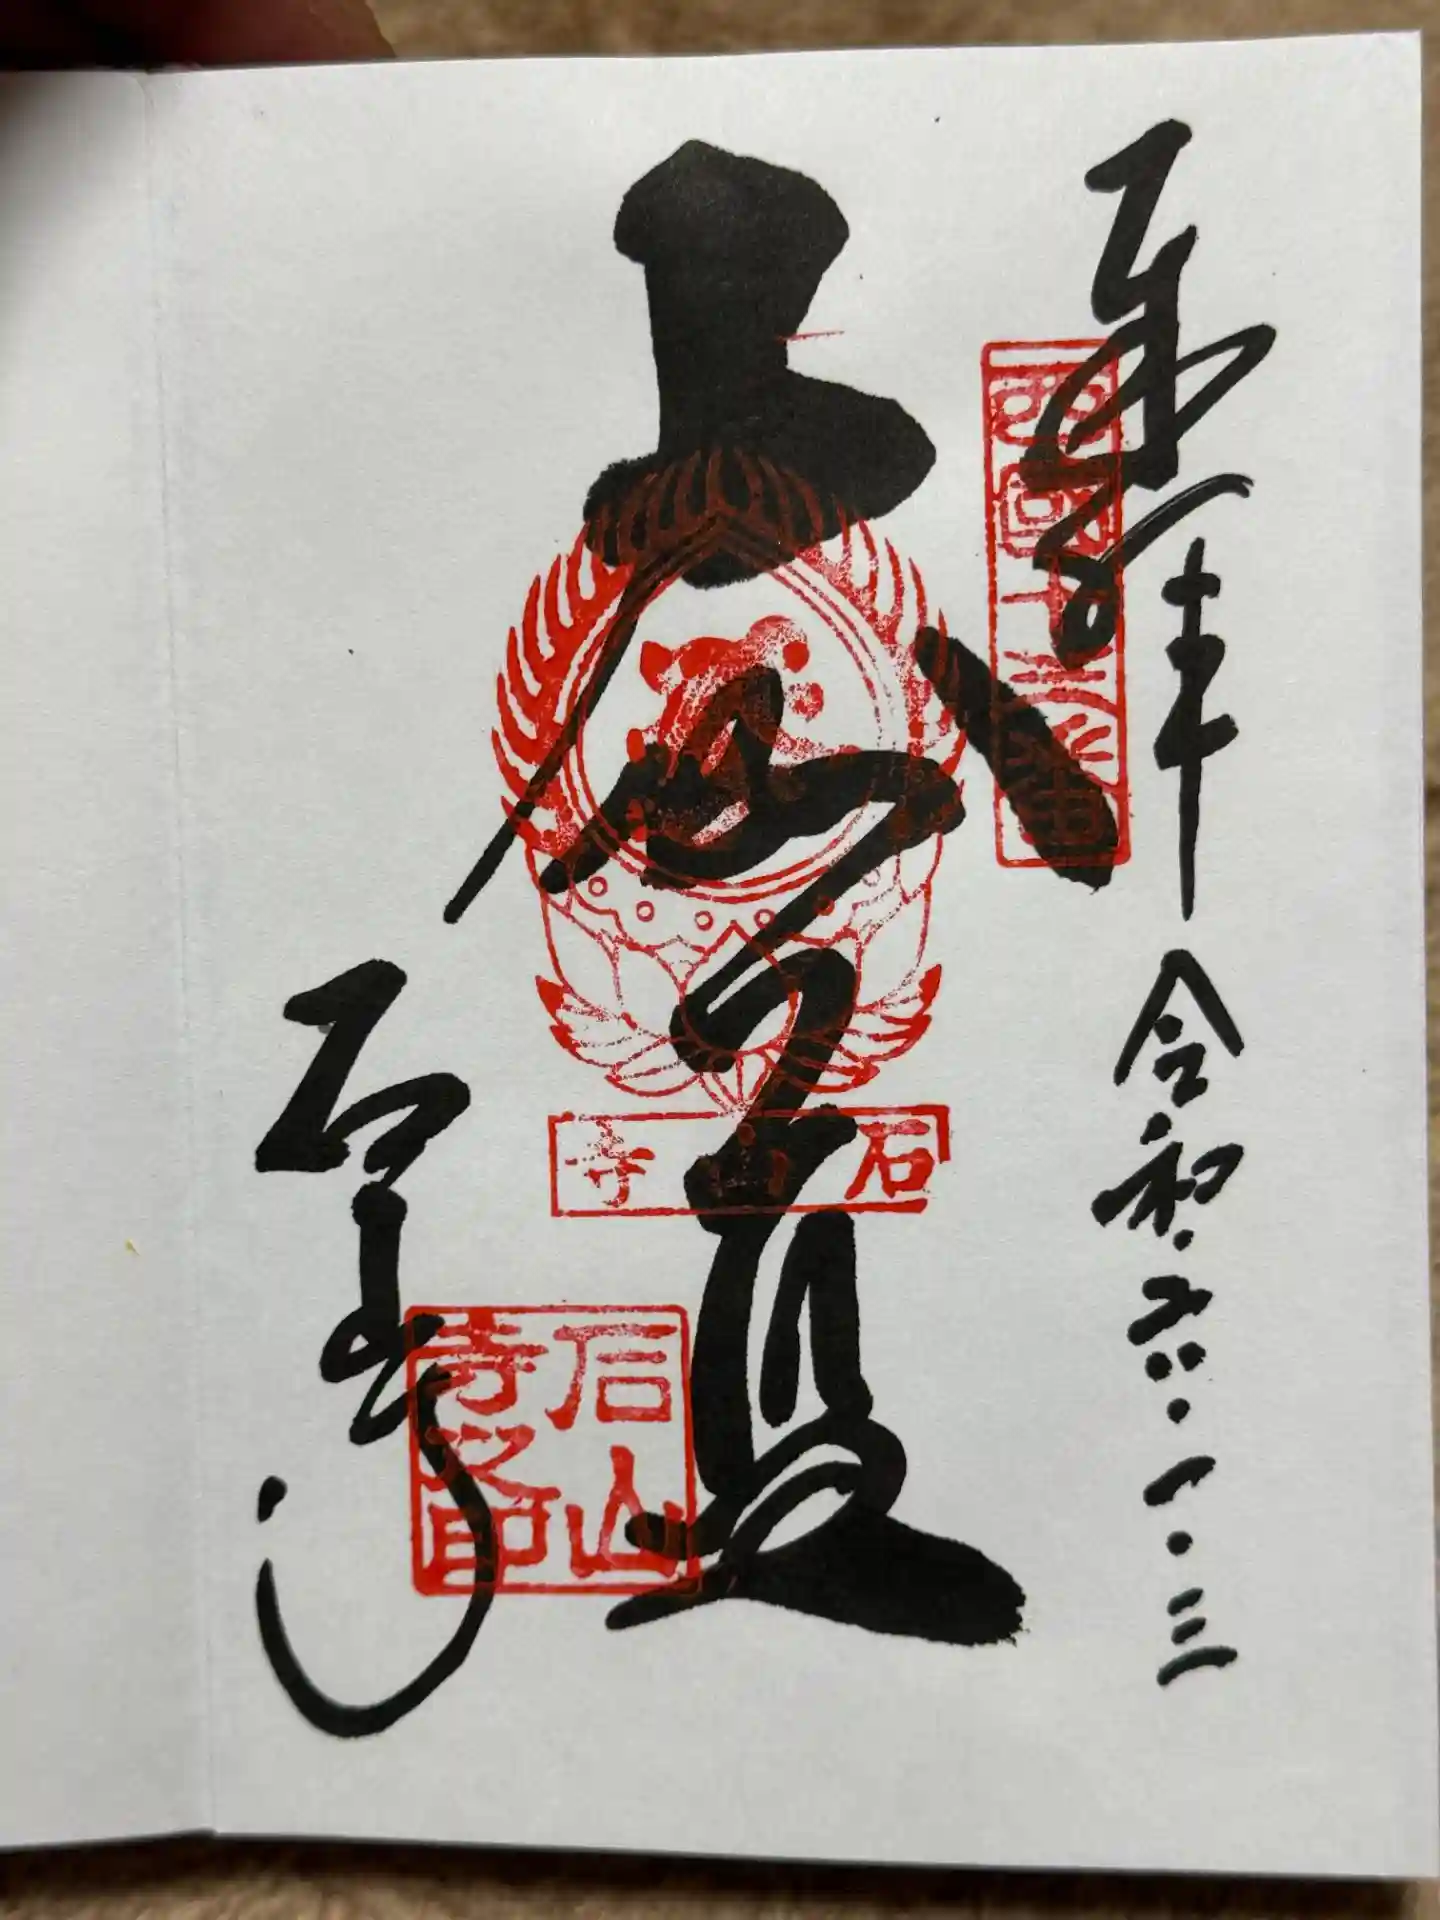 奉拝
令和六・一・三
西国十三番
石山寺
石山寺
石山寺之印